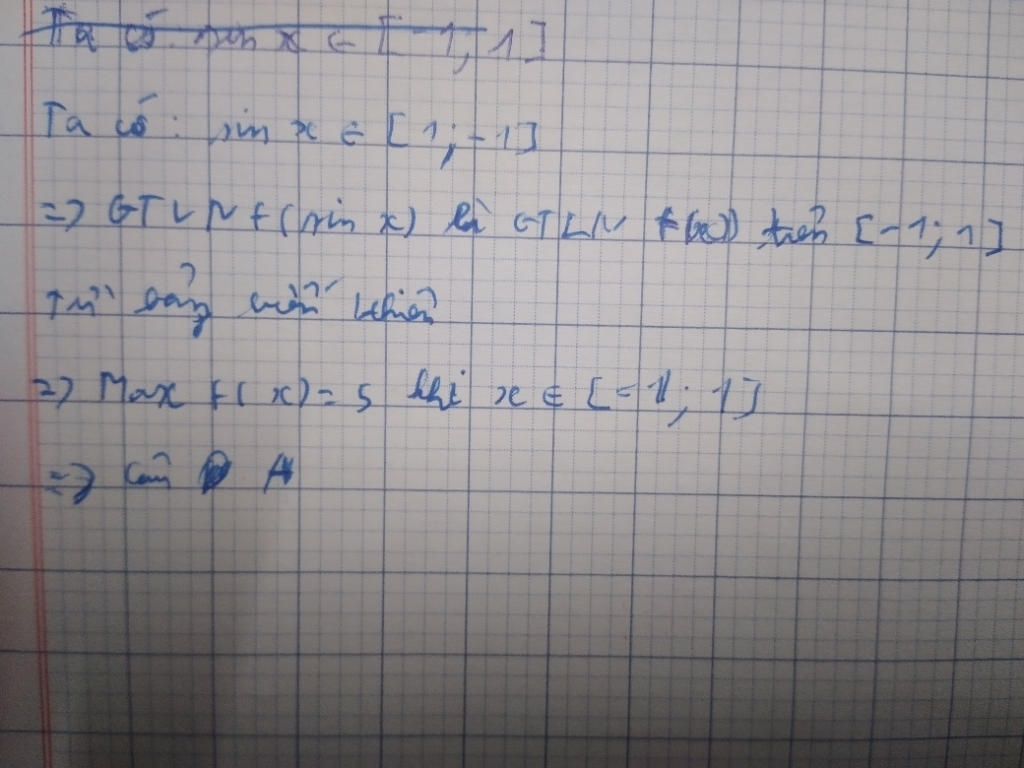 Ta có: sin x ∈ [-1; 1]
Ta có: sin x ∈ [1; -1]
=> GTLN f(sin x) là GTLN f(x) trên [-1; 1]
Từ bảng biến thiên
=> Max f(x) = 5 khi x ∈ [-1; 1]
=> Câu A